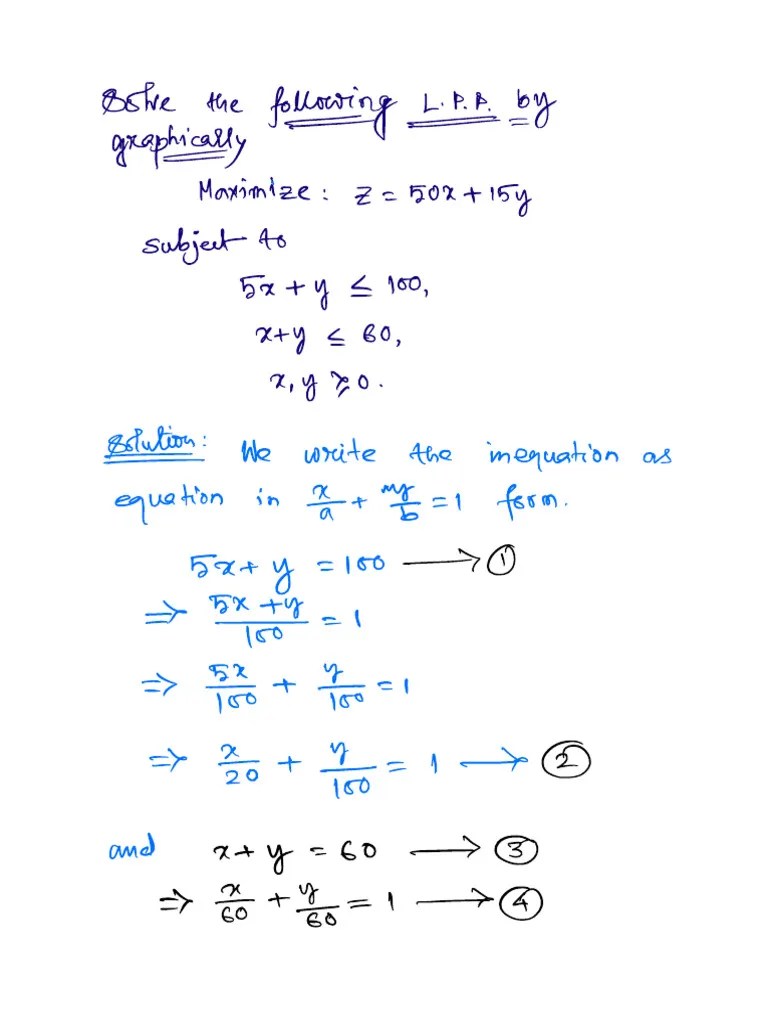 Solve the following L.P.P. by
graphically
Maximize: Z = 50x + 15y
Subject to
5x + y ≤ 100,
x+y ≤ 60,
x, y ≥ 0.
Solution: We write the inequation as
equation in x/a + y/b = 1 form.
5x + y = 100 → ①
⇒ (5x + y)/100 = 1
⇒ 5x/100 + y/100 = 1
⇒ x/20 + y/100 = 1 → ②
and x + y = 60 → ③
⇒ x/60 + y/60 = 1 → ④